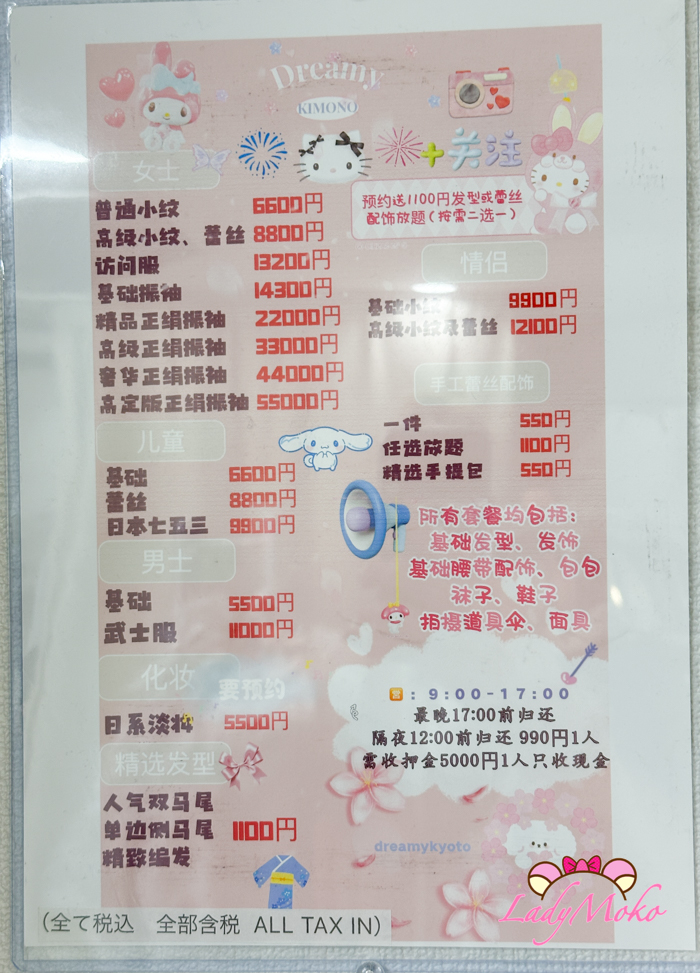 Dreamy
KIMONO
+关注
女士
普通小纹 6600円
高级小纹、蕾丝 8800円
访问服 13200円
基础振袖 14300円
精品正绢振袖 22000円
高级正绢振袖 33000円
奢华正绢振袖 44000円
高定版正绢振袖 55000円
儿童
基础 6600円
蕾丝 8800円
日本七五三 9900円
男士
基础 5500円
武士服 11000円
化妆 要预约
日系淡妆 5500円
精选发型
人气双马尾
单边侧马尾 1100円
精致编发
预约送1100円发型或蕾丝
配饰放题(按需二选一)
情侣
基础小纹 9900円
高级小纹及蕾丝 12100円
手工蕾丝配饰
一件 550円
任选放题 1100円
精选手提包 550円
所有套餐均包括:
基础发型、发饰
基础腰带配饰、包包
袜子、鞋子
拍摄道具伞、面具
営:9:00-17:00
最晚17:00前归还
隔夜12:00前归还 990円1人
需收押金5000円1人只收现金
dreamykyoto
(全て税込 全部含税 ALL TAX IN)
LadyMoko